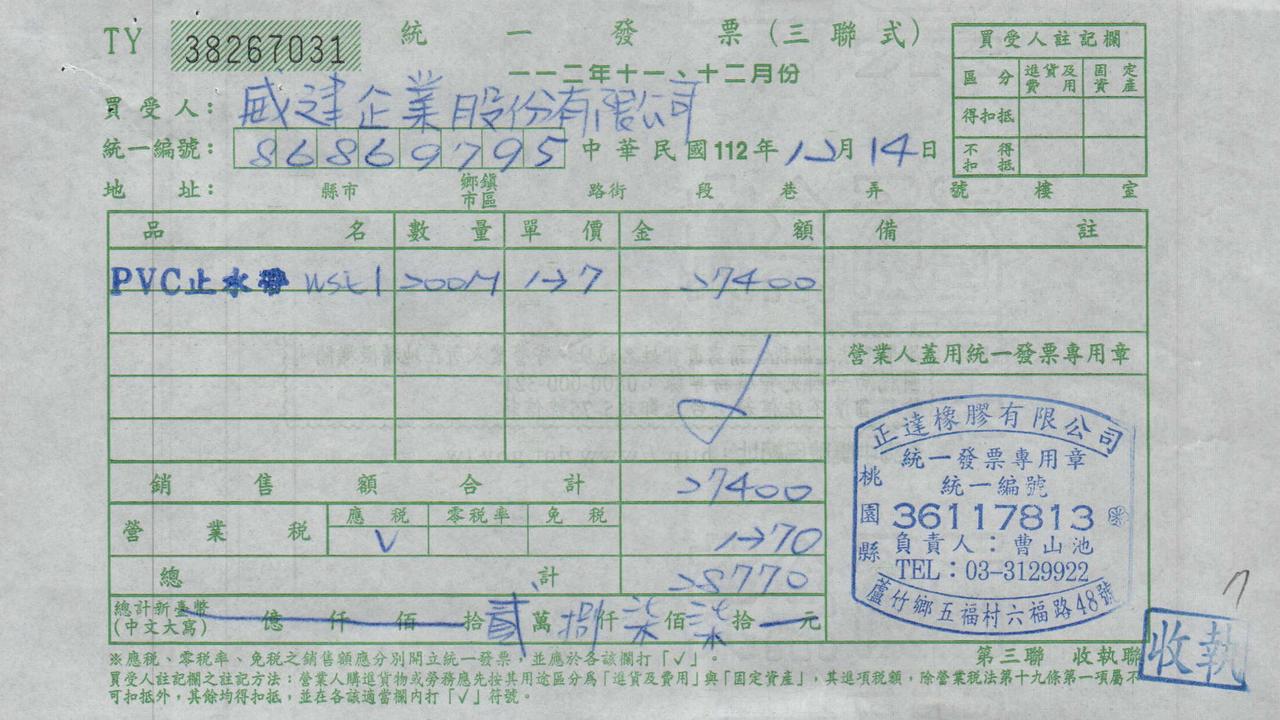 TY 38267031 統一發票(三聯式)
一一二年十一、十二月份
買受人註記欄
區分 進貨及費用 固定資產
得扣抵
不得扣抵
買受人: 威建企業股份有限公司
統一編號: 86869795 中華民國112年12月14日
地址: 縣市 鄉鎮市區 路街 段 巷 弄 號 樓 室
品名 數量 單價 金額 備註
PVC止水帶 200M 137 27400
營業人蓋用統一發票專用章
銷售額合計 27400
營業稅 應稅 V 零稅率 免稅 1370
總計 28770
總計新臺幣(中文大寫) 億 仟 佰 拾 貳 萬 捌 仟 柒 佰 柒 拾 元
正達橡膠有限公司
統一發票專用章
統一編號
36117813
負責人:曹山池
TEL:03-3129922
桃園縣
蘆竹鄉五福村六福路48號
※應稅、零稅率、免稅之銷售額應分別開立統一發票,並應於各該欄打「✓」。
第三聯 收執聯
收執
買受人註記欄之註記方法:營業人購進貨物或勞務應先按其用途區分為「進貨及費用」與「固定資產」,其進項稅額,除營業稅法第十九條第一項屬不
可扣抵外,其餘均得扣抵,並在各該適當欄內打「✓」符號。